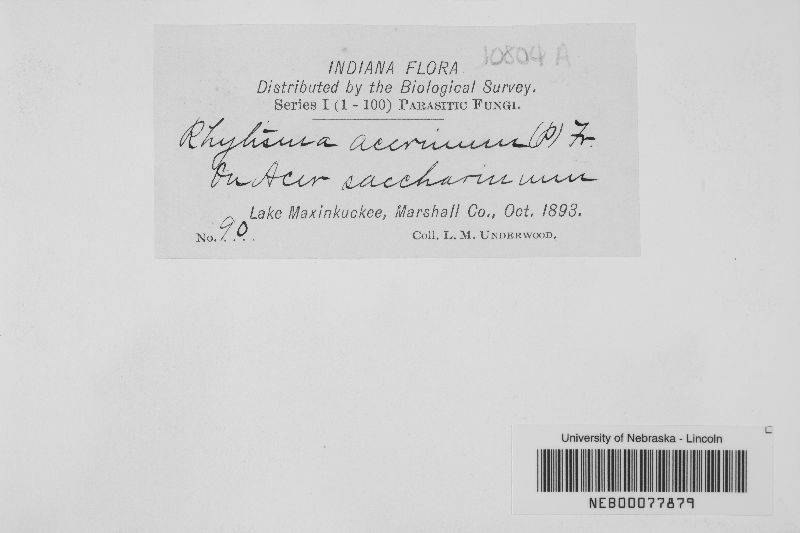 10804 A
INDIANA FLORA
Distributed by the Biological Survey.
Series I (1 - 100) PARASITIC FUNGI.
Rhytisma acerinum (P) Fr.
On Acer saccharinum
Lake Maxinkuckee, Marshall Co., Oct. 1893.
No. 90.... Coll. L. M. UNDERWOOD.
University of Nebraska - Lincoln
NEB00077879